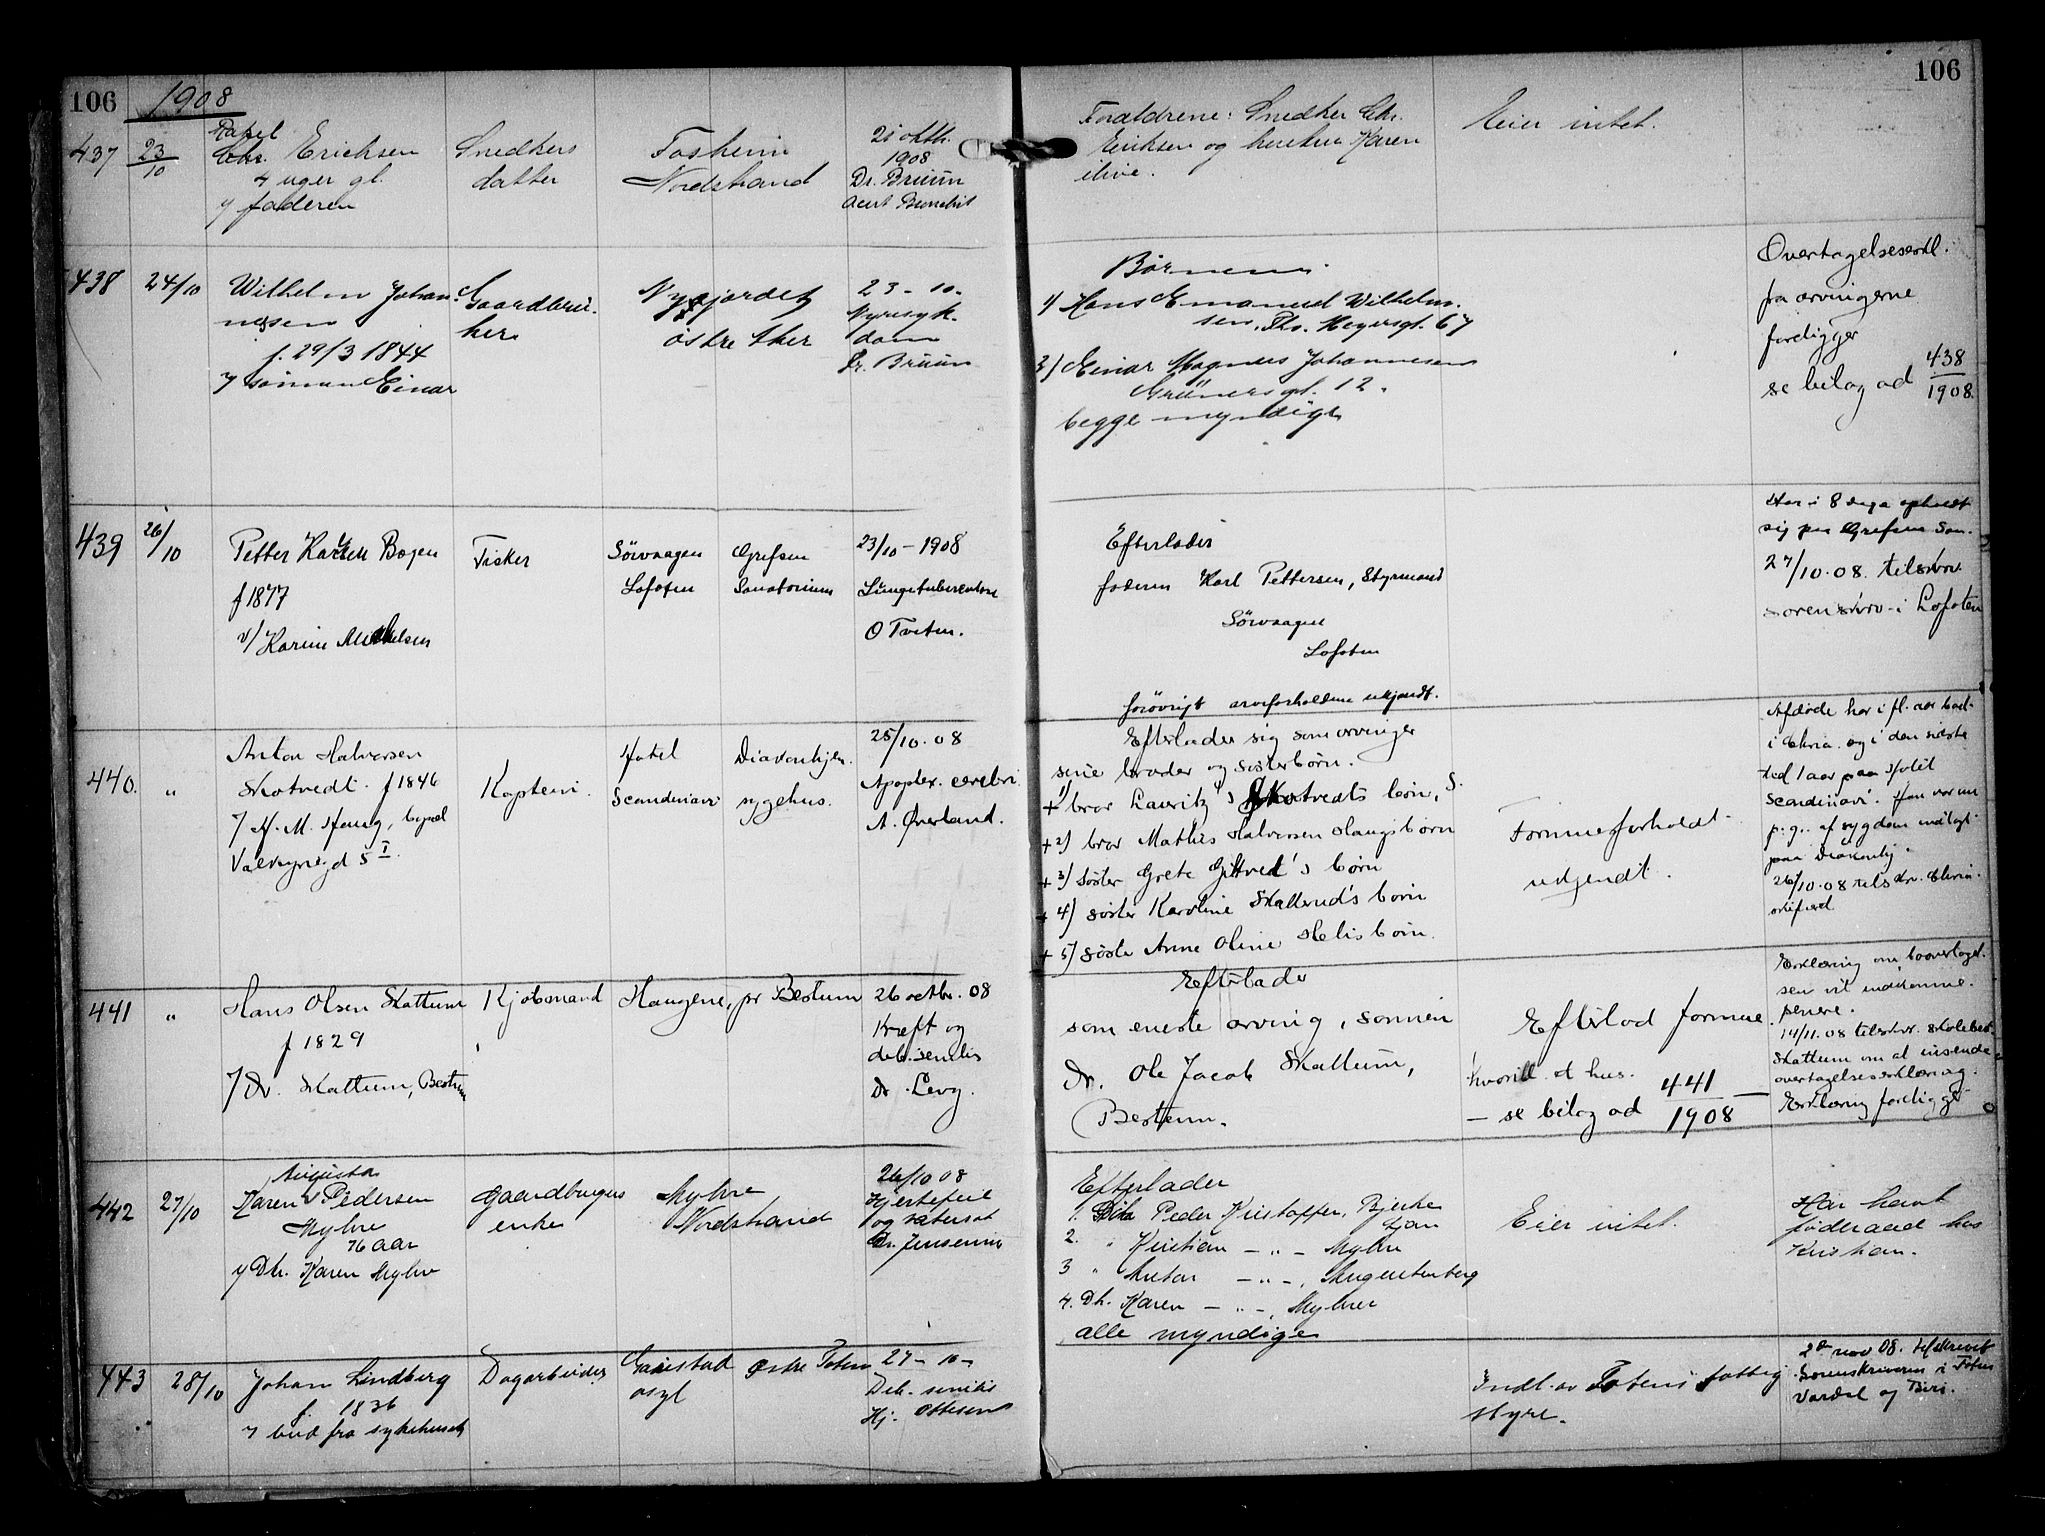 106
1908
437
23/10
Chr. Ericksen
4 uger gl.
faderen
Snedkers
datter
Nordstrand
21 oktb.
1908
Dr. Bruun
Forældrene: Snedker Chr.
Ericksen og hustru Karen
ilive.
Eier intet.
106
438
24/10
Wilhelm Johan-
nesen
f. 29/3 1844
sönnen Einar
Gaardbru-
ker
östre Aker
23-10-
Nyresyk-
dom
Dr. Bruun
Börnene
1) Hans Emanuel Wilhelm-
sen, Ths. Meyersgt. 67
2) Einar Magnus Johannesen
Grünersgt. 12.
begge myndige
Overtagelseserkl.
fra arvingerne
foreligger
se bilag ad 438/1908.
439
26/10
Petter Bogen
f 1877
v/ Karine
Fisker
Sörvaagen
Lofoten
Grefsen
Sanatorium
23/10-1908
Lungetuberculose
O Tveten.
Efterlader
faderen Karl Pettersen, Styrmand
Sörvaagen
Lofoten
forövrigt arveforholdene ukjendt.
Har i 8 dage opholdt
sig paa Grefsen San.
27/10.08. tilskrv.
sorenskrv. i Lofoten
440.
"
Anton Halvorsen
Skotvedt. f 1846
Kaptein.
Hotel
Scandinavi
Diakonhjem.
sygehus.
25/10.08
Apoplex. cerebri
A. Øverland.
Efterlader sig som arvinger
sine broder og søsterbörn.
+ 1) bror Lauritz Skotvedts börn, S.
+ 2) bror Mathis Halvorsen Haugs börn
+ 3) söster Grete 's börn
+ 4) söster Karoline Skallerud's börn
+ 5) söster Anne Oline börn.
Formuesforholdt
ukjendt.
Afdöde har i fl. aar
i Chria. og i den sidste
tid 1 aar paa Hotel
Scandinavi. Han var nu
p. g. af sygdom indlagt
paa Diakonhj.
26/10.08 tilskr. Chria.
skifteret
441
"
Hans Olsen Skattum
f 1829
Dr. Skattum, Bestum
Kjöbmand
Haugene, pr Bestum
26 octbr. 08
Kræft og
deb. senilis
Dr. Levy.
Efterlader
som eneste arving, sönnen
Dr. Ole Jacob Skattum,
Bestum.
Efterlod formue
hvoribl. et hus.
— se bilag ad 441/1908 —
Erklæring om boovertagel-
sen vil indkomme
senere.
14/11.08 tilskr. skolebest.
Skattum om at insende
overtagelseserklæring.
Erklæring foreligger
442
27/10
Augusta
Karen Pedersen
Myhre
76 aar
Dtr. Karen Myhre
Gaardbrugers
enke
Myhre
Nordstrand
26/10 08
Hjertefeil
og vatersot
Dr. Jensenius
Efterlader
1. Peder Kristoffer, Bjerke
Ljan
2. " Kristian — " — Myhre
3 " Anton — " —,
4. Dtr. Karen — " —, Myhre
alle myndige
Eier intet.
Har havt
föderaad hos
Kristian.
443
28/10
Johan Lindberg
f. 1836
bud fra sykehuset
Dagarbeider
Gaustad
asyl
Østre Toten
27-10-
Deb. senilis
Hj. Ottesen
Indl. av Totens fattig-
styre.
2den nov 08. tilskrevet
Sorenskriveren i Toten
Vardal og Biri.